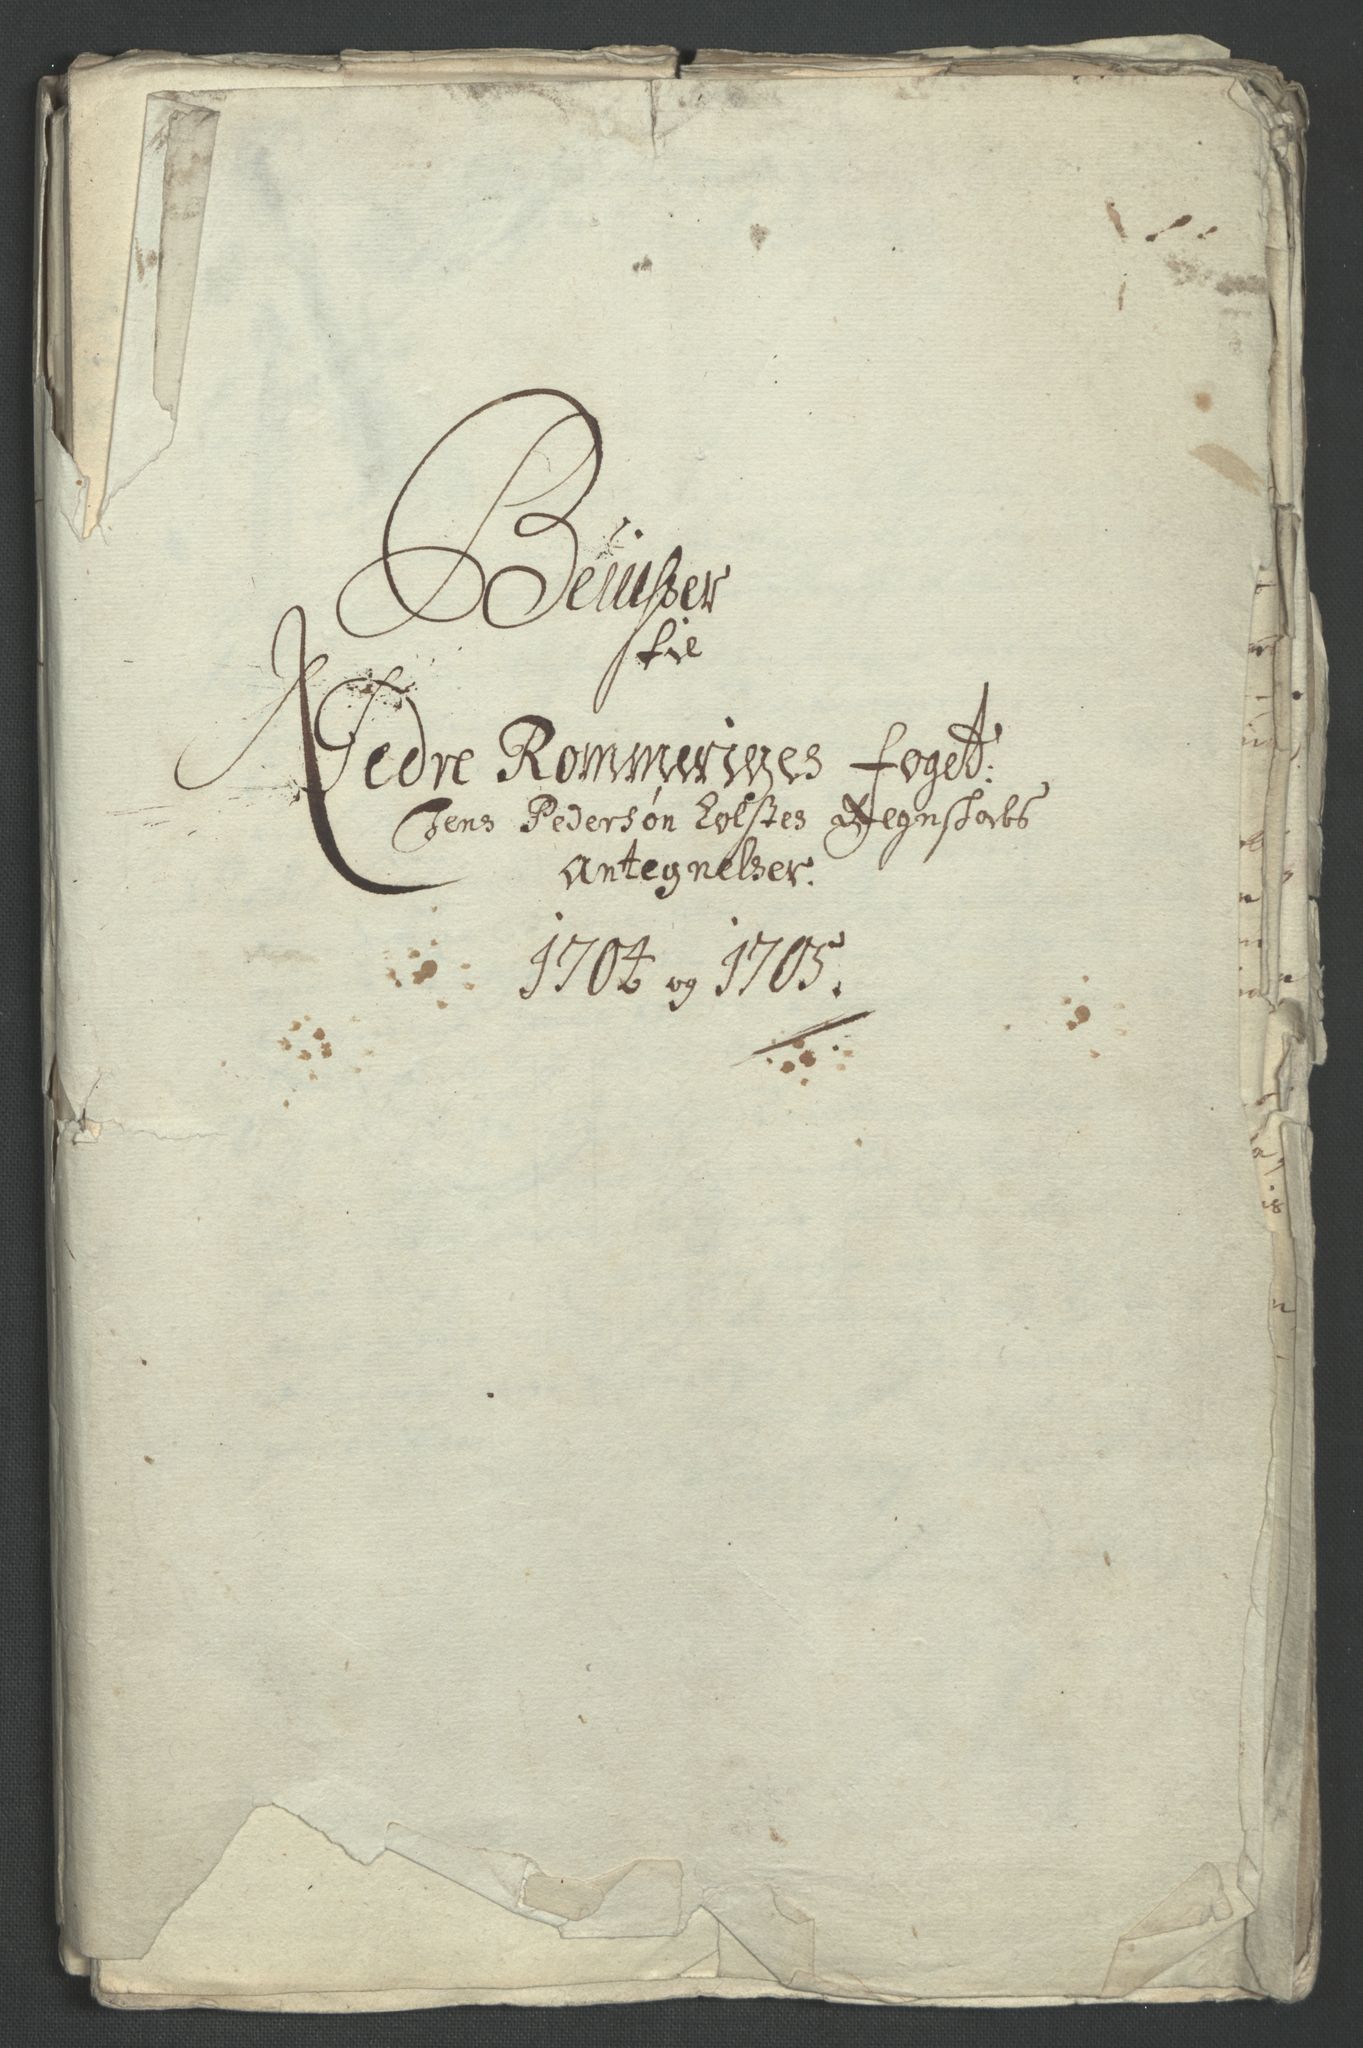 Beviisser
til
Nedre Rommeriges foget:
Jens Pedersøn Holstes Regnskabs
Antegnelser.
1704 og 1705.